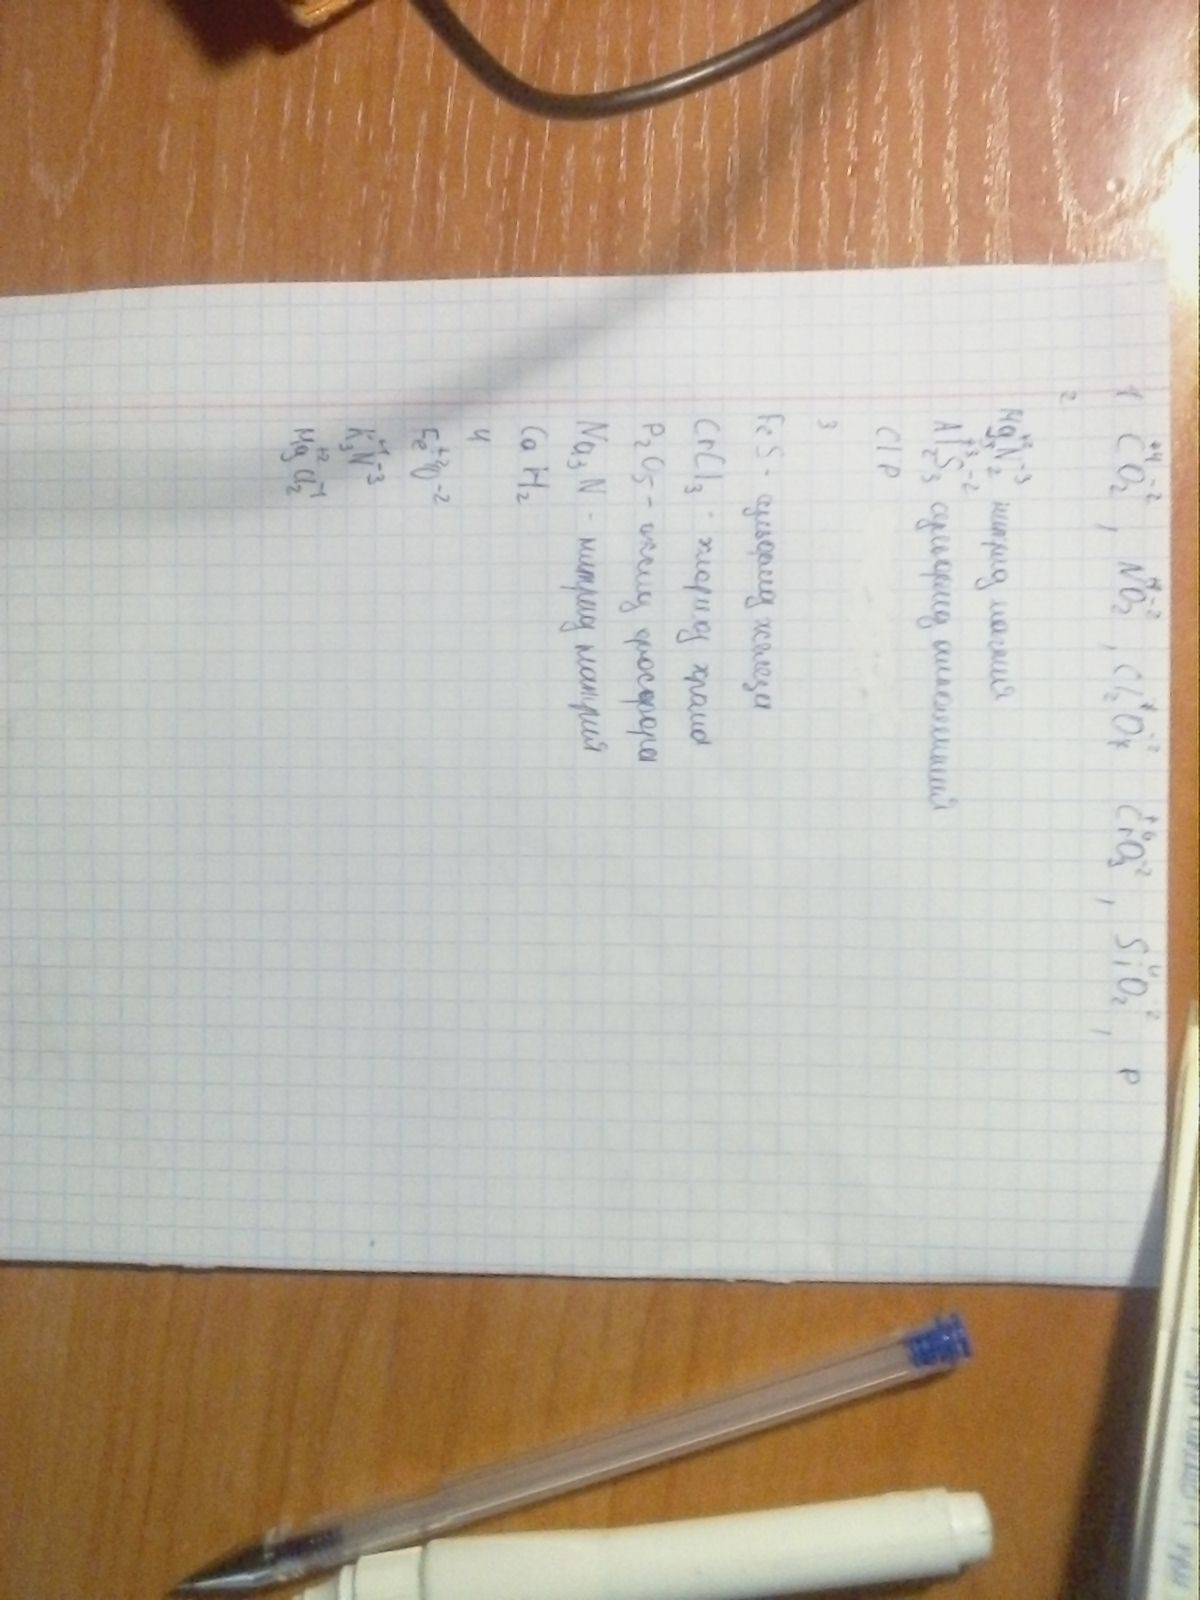 1 C⁺⁴O₂⁻², N⁺⁴O₂⁻², Cl₂⁷O₇⁻² Cr⁺⁶O₃⁻², Si⁴O₂⁻², P
2
Mg₃⁺²N₂⁻³ нитрид магния
Al₂⁺³S₃⁻² сульфид алюминия
Cl P
3
FeS - сульфид железа
CrCl₃ - хлорид хрома
P₂O₅ - оксид фосфора
Na₃N - нитрид натрия
CaH₂
4
Fe⁺²O⁻²
K₃⁺¹N⁻³
Mg⁺²Cl₂⁻¹